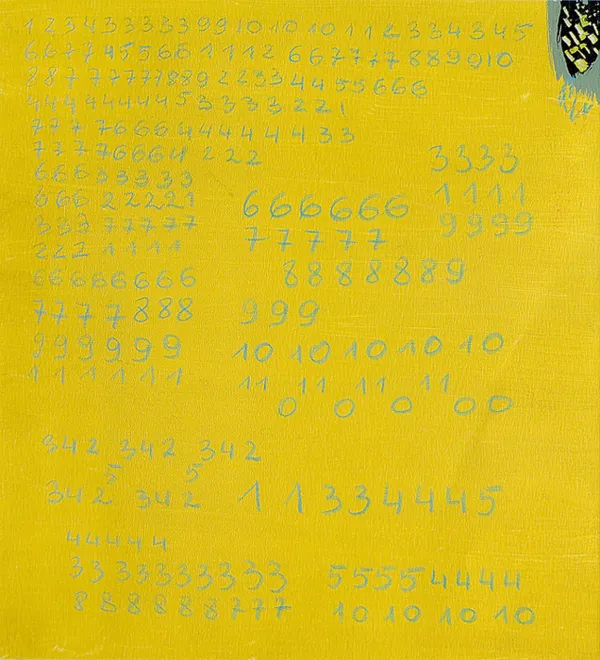 1 2 3 4 3 3 3 3 3 9 9 10 10 10 1 1 2 3 3 4 3 4 5
6 6 7 7 4 5 5 6 6 1 1 1 2 6 6 7 7 7 7 8 8 9 9 10
8 8 7 7 7 7 7 7 8 8 9 2 2 3 3 4 4 5 5 6 6 6
4 4 4 4 4 4 4 4 5 3 3 3 3 2 2 1
7 7 7 7 6 6 6 4 4 4 4 4 4 4 3 3
7 7 7 7 6 6 6 4 2 2 2
6 6 6 3 3 3 3 3
6 6 6 2 2 2 2 1
3 3 3 7 7 7 7 7
2 2 2 1 1 1 1
6 6 6 6 6 6 6 6 6
7 7 7 7 8 8 8
9 9 9 9 9 9
1 1 1 1 1 1 1
3 3 3 3
1 1 1 1
9 9 9 9
6 6 6 6 6 6 6
7 7 7 7 7
8 8 8 8 8 8 9
9 9 9
10 10 10 10 10
11 11 11 11
0 0 0 0 0
342 342 342
5 5
342 342 1 1 3 3 4 4 4 5
4 4 4 4 4
3 3 3 3 3 3 3 3 3 3
8 8 8 8 8 8 7 7 7
5 5 5 5 4 4 4 4
10 10 10 10